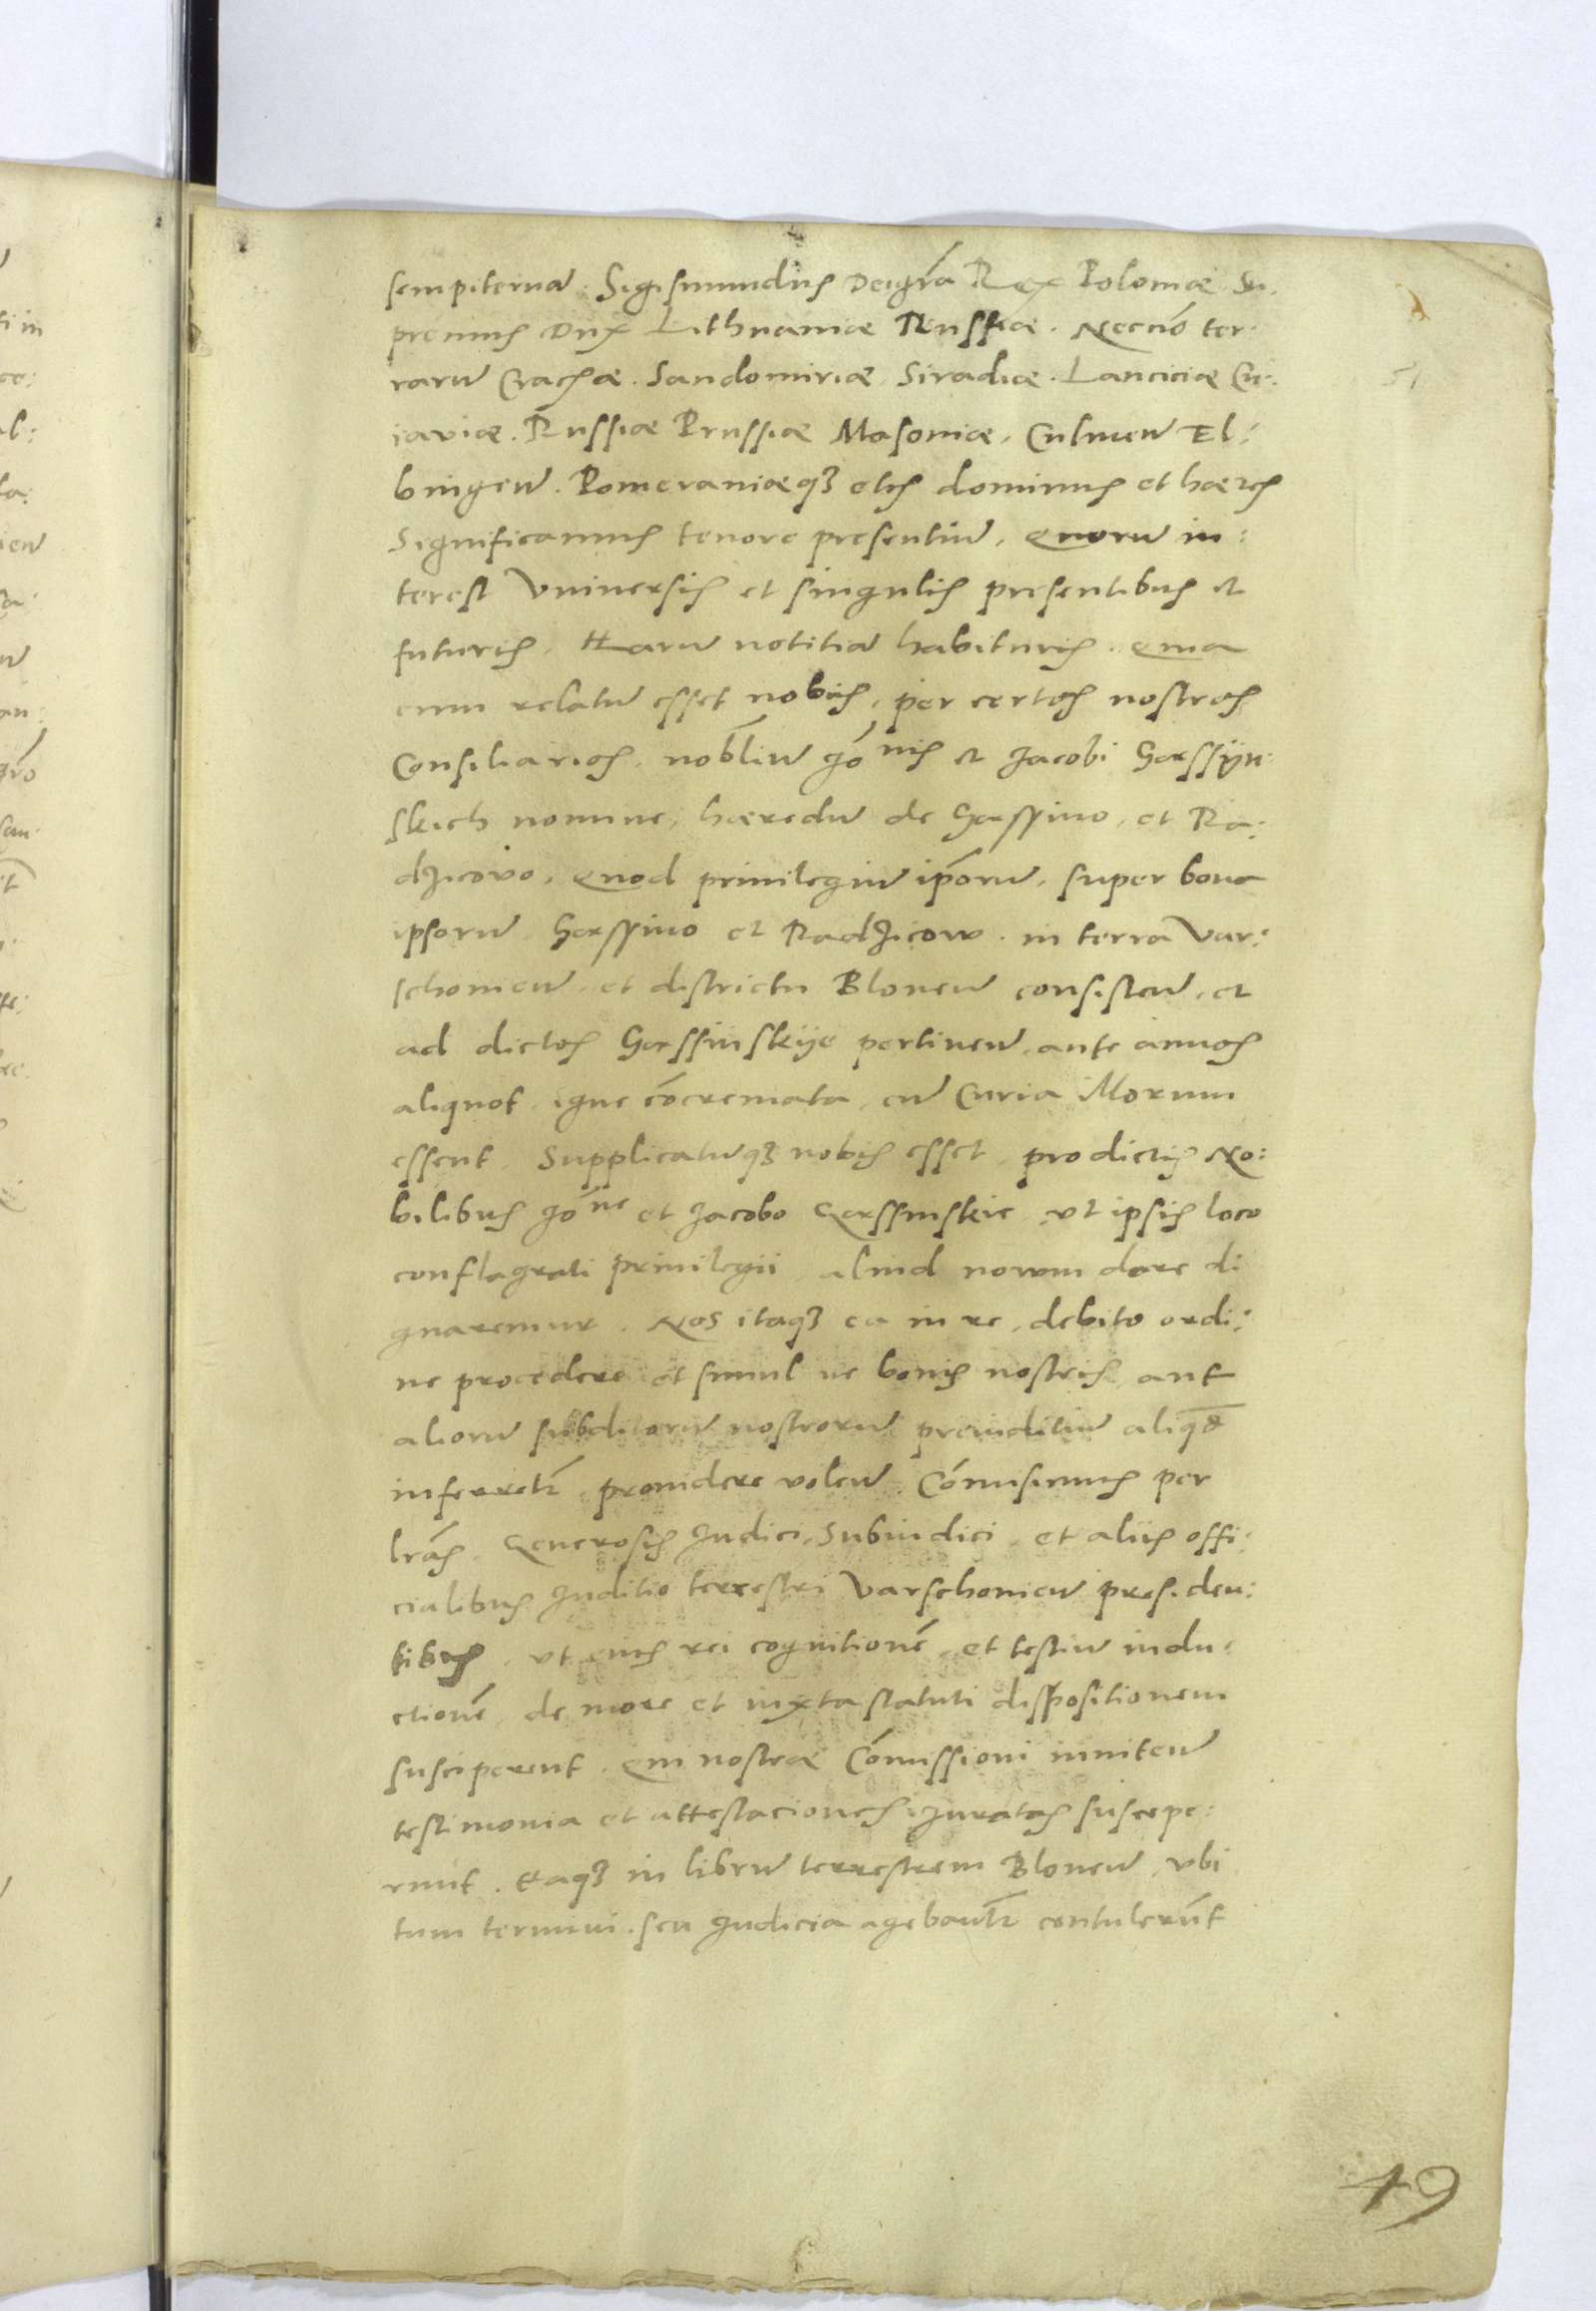 sempiternã. Sigismundus Dei grã Rex Poloniæ Su:
premus Dux Lithuaniæ Russiæ. Necnõ ter:
rarũ Crachæ. Sandomiriæ, Siradiæ. Lanciciæ Cu:
iaviæ. Russiæ Prussiæ Masoniæ, Culmeñ El:
bingeñ. Pomeraniæq3 etcs dominus et hæres
Significamus tenore presentiũ, Quorũ in:
terest Vniversis et singulis presentibus et
futuris. Harũ notitiã habituris. Quia
cum relatũ esset nobis, per certos nostros
Consiliarios. nobliũ Joñis et Jacobi Gerssÿn:
skich nomine, hæredũ de Gerssino, et Ra:
dzicovo, Quod privilegiũ ip̃orũ, super bona
ipsorũ Gerssino et Radzicow. in terra Var:
schonieñ. et districtu Bloneñ consisteñ. et
ad dictos Gerssinskÿe pertineñ, ante annos
aliquot igne cõcremata cũ Curia Morum
essent. Supplicatũq3 nobis esset, pro dictis No:
bilibus Joñne et Jacobo Gerssinskie, ut ipsis loco
conflagrati privilegii aliud novum dare di
gnaremur. Nos itaq3 ea in re, debito ordi:
ne procedere et simul ne bonis nostris aut
aliorũ subditorũ nostrorũ preiuditiũ aliqđ
inferretr, providere voleñ. Cõmisimus per
lrãs. Generosis Judici, Subiudici, et aliis offi:
cialibus Juditio terrestri Varschonieñ presideñ:
tibus, ut eius rei cognitionẽ, et testiũ indu:
ctionẽ de more et iuxta statuti dispositionem
susciperent. Qui nostræ Cõmissioni inniteñ
testimonia et attestaciones Juratas suscepe:
runt. Eaq3 in librũ terrestrem Bloneñ, ubi
tum termini. seu Judicia agebantr contulerũt
51
49